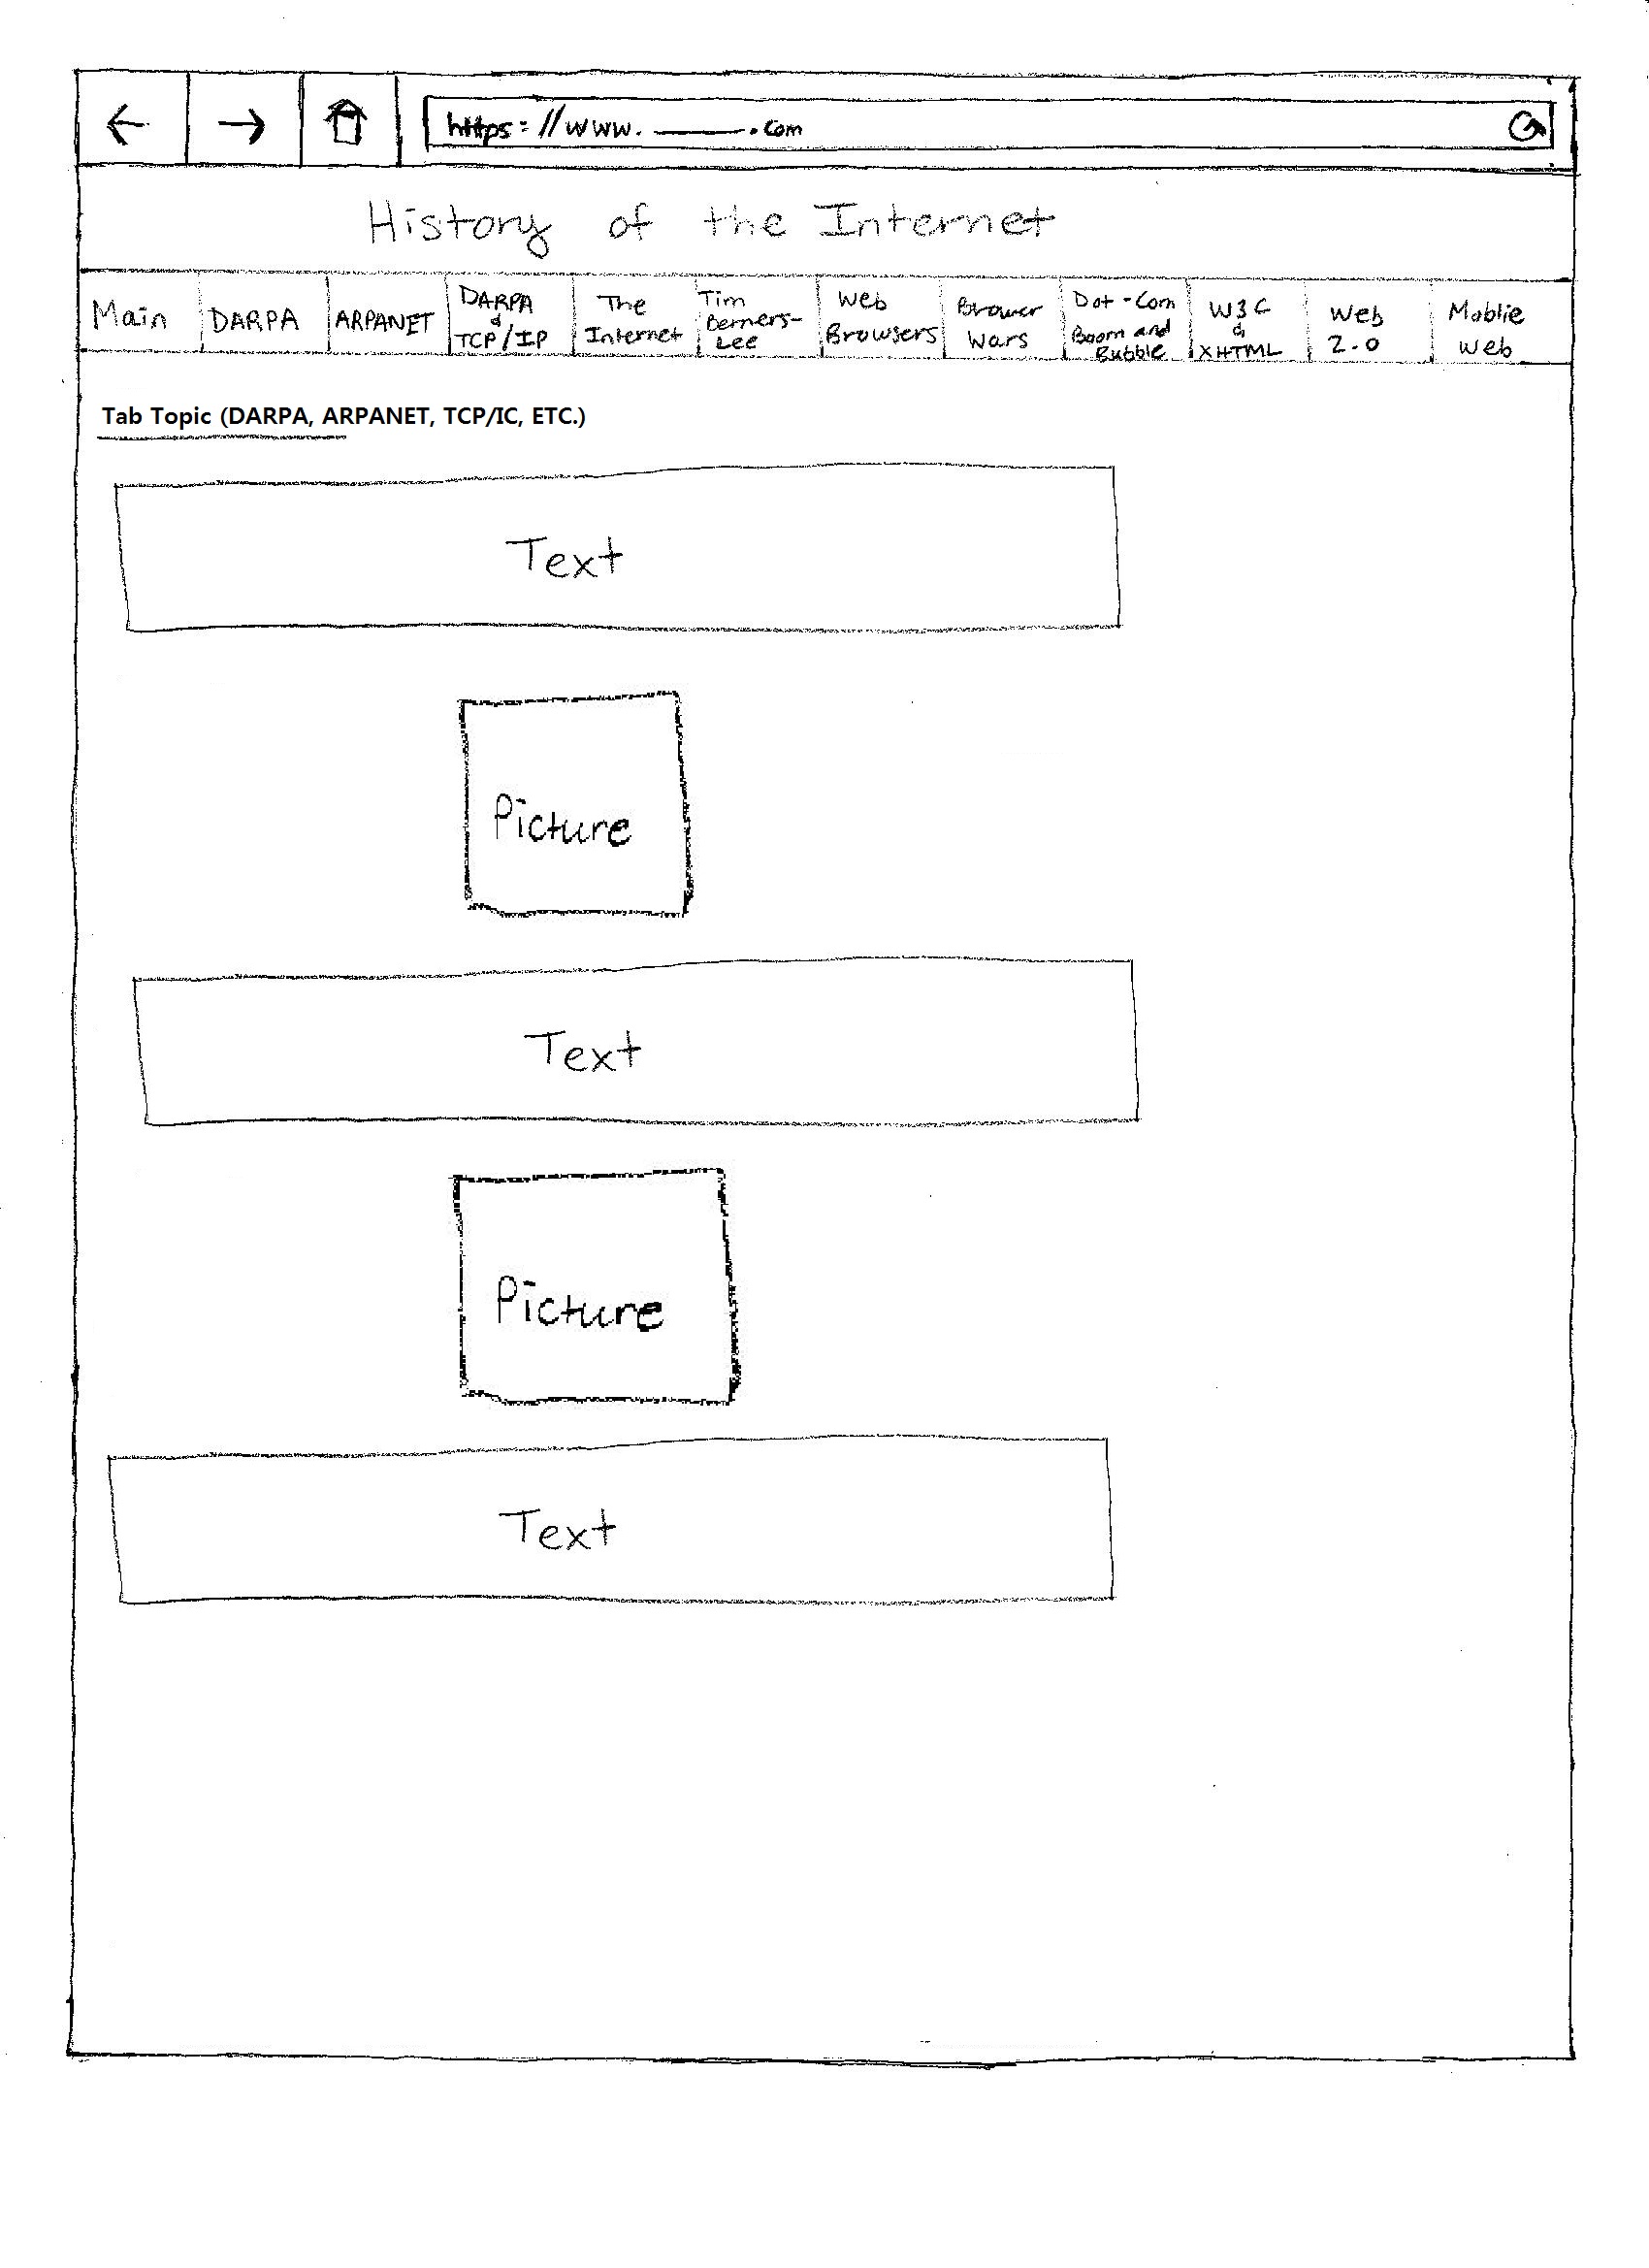 https://www.____.com
History of the Internet
Main
DARPA
ARPANET
DARPA
&
TCP/IP
The
Internet
Tim
Berners-
Lee
Web
Browsers
Brower
Wars
Dot-Com
Boom and
Bubble
W3C
&
XHTML
Web
2.0
Moblie
Web
Tab Topic (DARPA, ARPANET, TCP/IC, ETC.)
Text
Picture
Text
Picture
Text